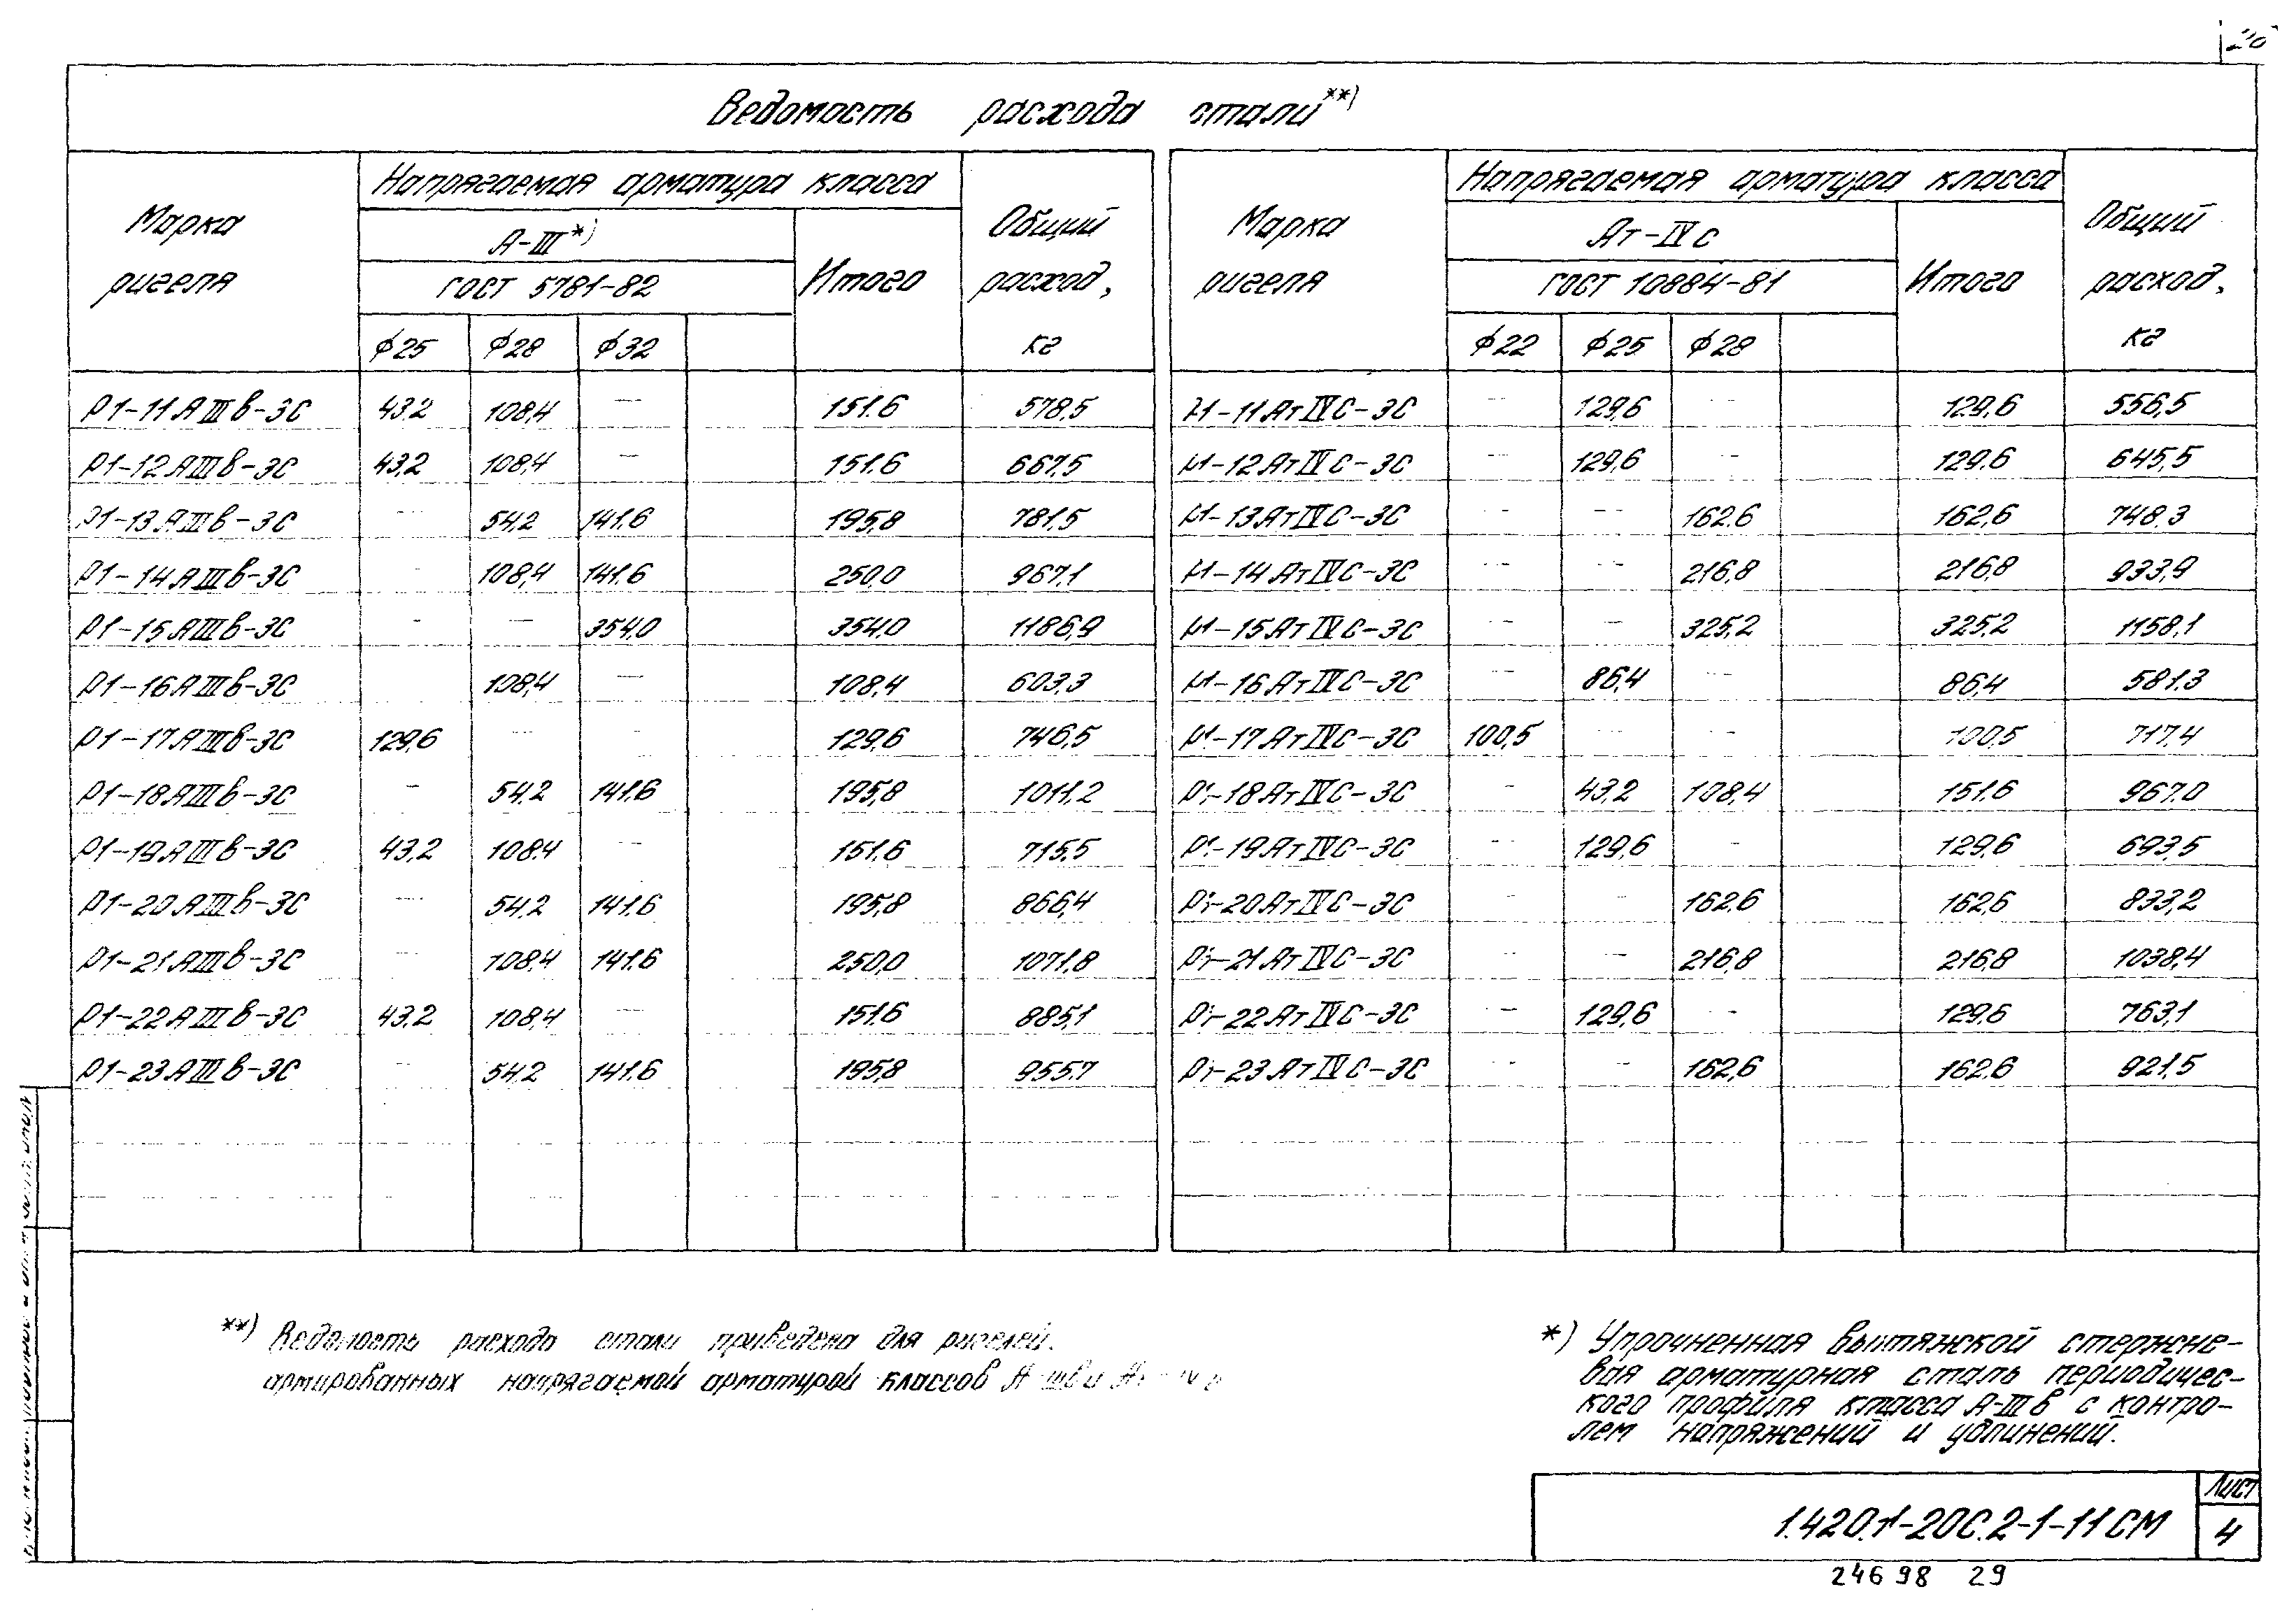 20
Ведомость расхода стали**)
Марка ригеля | Напрягаемая арматура класса | Общий расход, кг | Марка ригеля | Напрягаемая арматура класса | Общий расход, кг
А-III*) | Итого | Ат-IVС | Итого
ГОСТ 5781-82 | ГОСТ 10884-81
ф25 | ф28 | ф32 | ф22 | ф25 | ф28
Р1-11АIIIв-3С | 43,2 | 108,4 | — | 151,6 | 578,5 | Р1-11АтIVС-3С | — | 129,6 | — | 129,6 | 556,5
Р1-12АIIIв-3С | 43,2 | 108,4 | — | 151,6 | 667,5 | Р1-12АтIVС-3С | — | 129,6 | — | 129,6 | 645,5
Р1-13АIIIв-3С | — | 54,2 | 141,6 | 195,8 | 781,5 | Р1-13АтIVС-3С | — | — | 162,6 | 162,6 | 748,3
Р1-14АIIIв-3С | — | 108,4 | 141,6 | 250,0 | 967,1 | Р1-14АтIVС-3С | — | — | 216,8 | 216,8 | 933,9
Р1-15АIIIв-3С | — | — | 354,0 | 354,0 | 1186,9 | Р1-15АтIVС-3С | — | — | 325,2 | 325,2 | 1158,1
Р1-16АIIIв-3С | 108,4 | — | 108,4 | 603,3 | Р1-16АтIVС-3С | — | 86,4 | — | 86,4 | 581,3
Р1-17АIIIв-3С | 129,6 | — | — | 129,6 | 746,5 | Р1-17АтIVС-3С | 100,5 | — | — | 100,5 | 717,4
Р1-18АIIIв-3С | — | 54,2 | 141,6 | 195,8 | 1011,2 | Р1-18АтIVС-3С | — | 43,2 | 108,4 | 151,6 | 967,0
Р1-19АIIIв-3С | 43,2 | 108,4 | — | 151,6 | 715,5 | Р1-19АтIVС-3С | — | 129,6 | — | 129,6 | 693,5
Р1-20АIIIв-3С | — | 54,2 | 141,6 | 195,8 | 866,4 | Р1-20АтIVС-3С | — | — | 162,6 | 162,6 | 833,2
Р1-21АIIIв-3С | — | 108,4 | 141,6 | 250,0 | 1071,8 | Р1-21АтIVС-3С | — | — | 216,8 | 216,8 | 1038,4
Р1-22АIIIв-3С | 43,2 | 108,4 | — | 151,6 | 885,1 | Р1-22АтIVС-3С | — | 129,6 | — | 129,6 | 763,1
Р1-23АIIIв-3С | — | 54,2 | 141,6 | 195,8 | 955,7 | Р1-23АтIVС-3С | — | — | 162,6 | 162,6 | 921,5
**) Ведомость расхода стали приведена для ригелей,
армированных напрягаемой арматурой классов
*) Упрочненная вытяжкой стержне-
вая арматурная сталь периодичес-
кого профиля класса А-IIIв с контро-
лем напряжений и удлинений.
1.420.1-20С.2-1-11СМ
Лист
4
24698 29